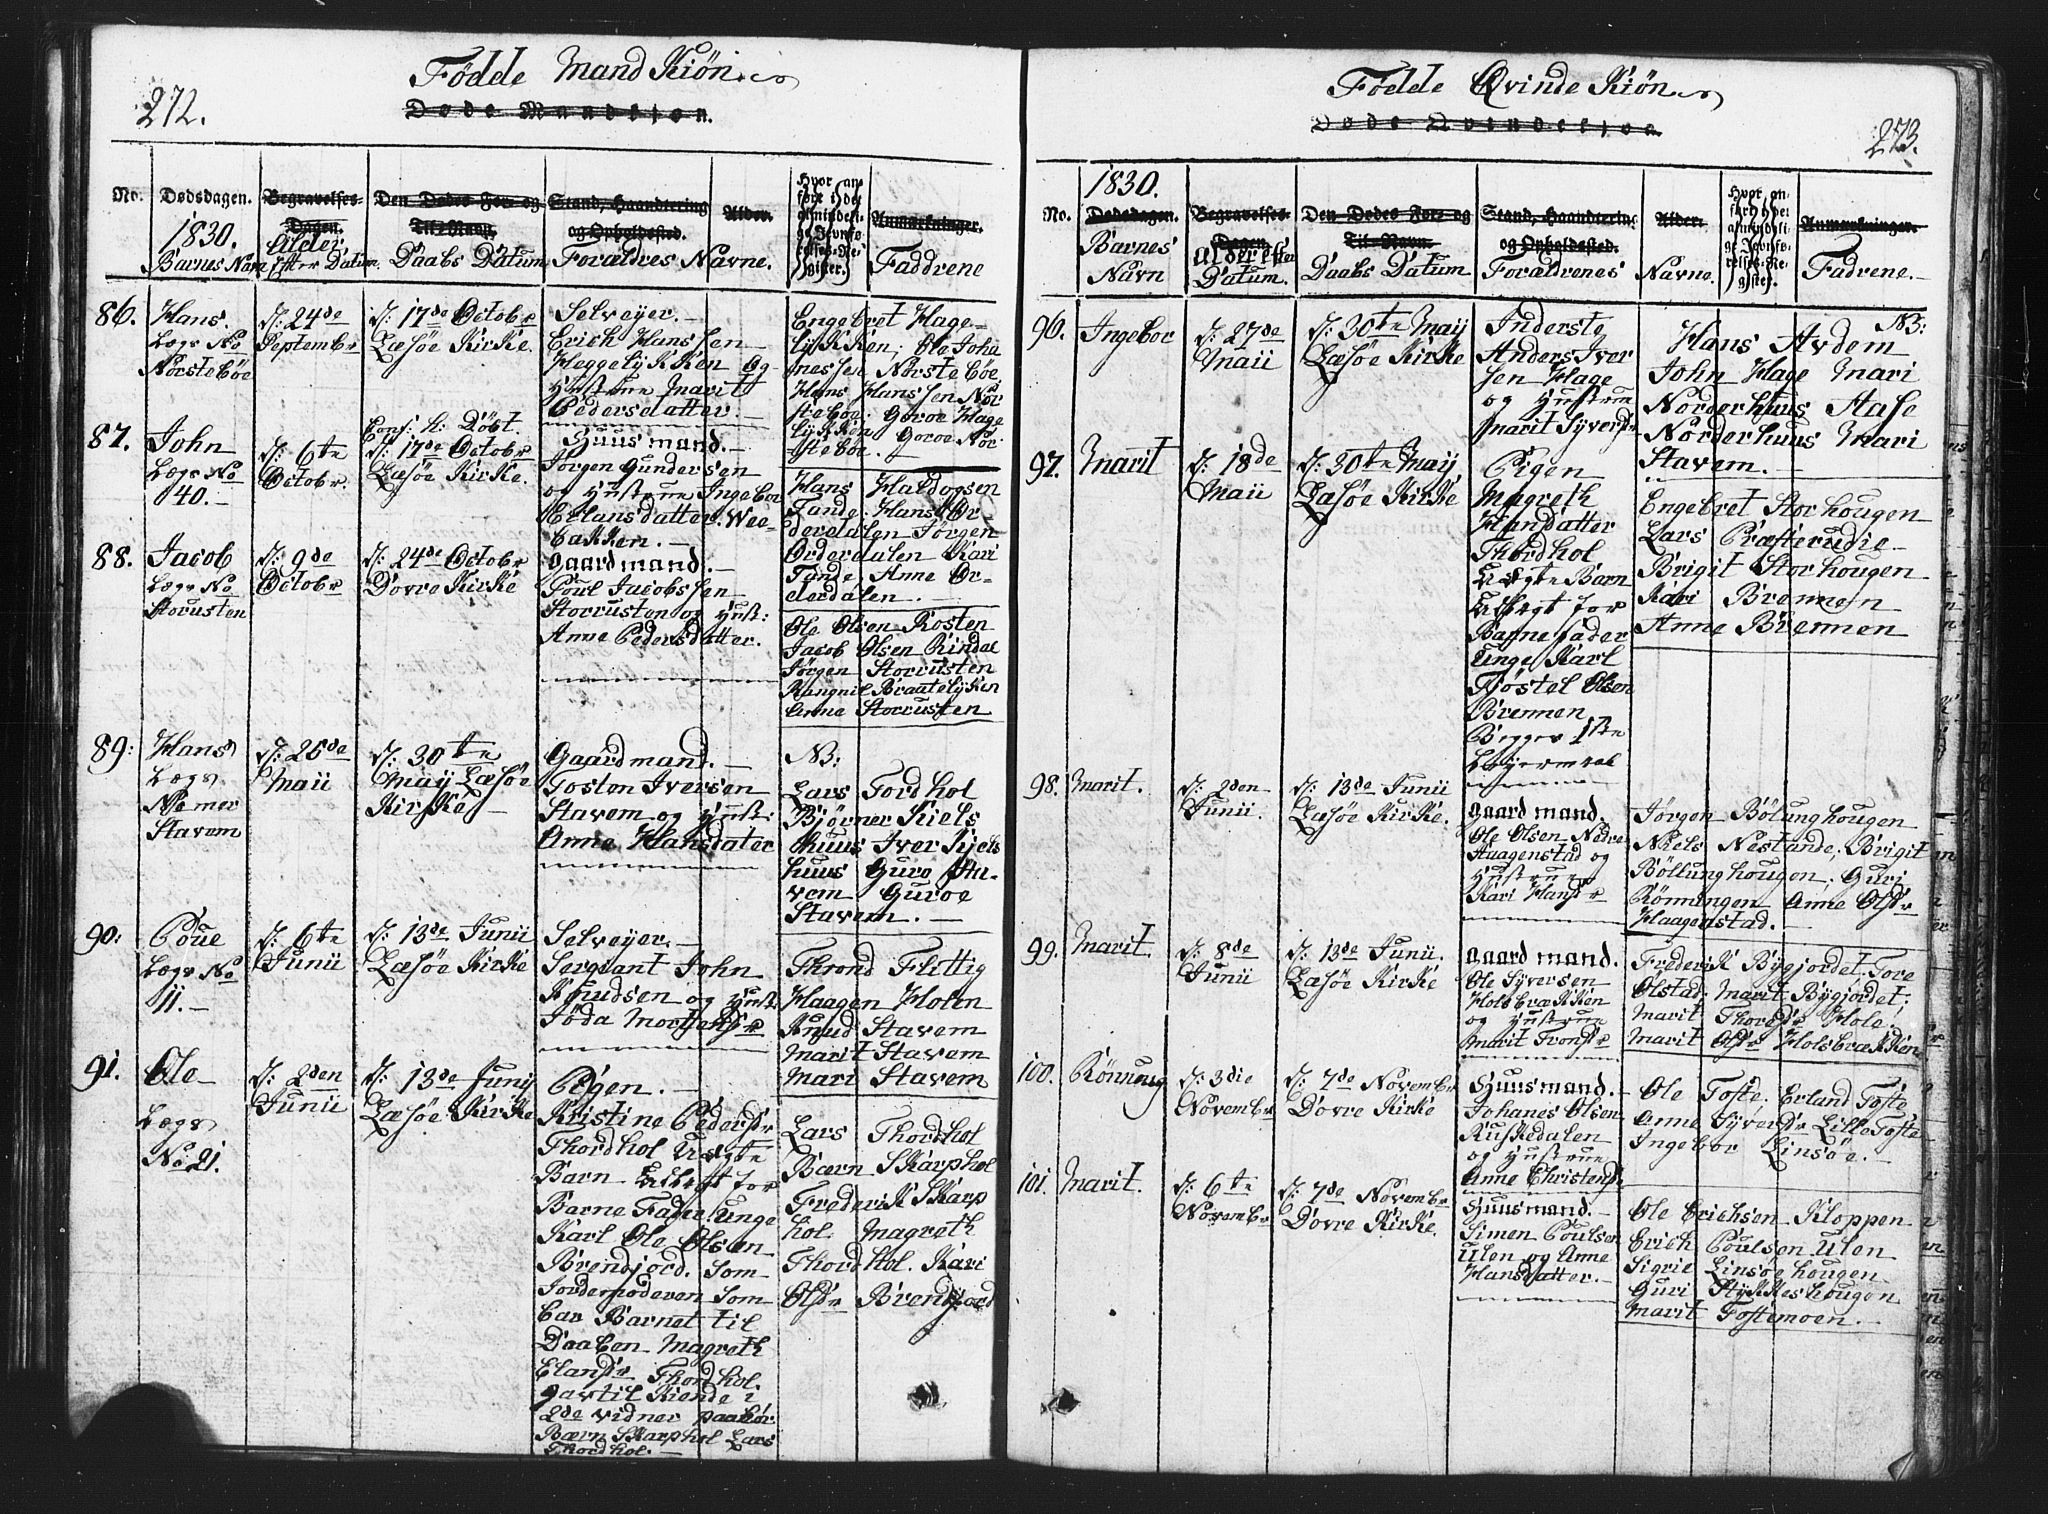 272.
Fødde Mand Kiøn
Døde Mandkjøn.
No.
Dødsdagen.
1830.
Barnes Navn
Begravelses-
Dagen.
Alder
Efter Datum.
Den Dødes For- og
Til-Navn.
Daabs Datum
Stand, Haandtering
og Opholdssted.
Forældres Navne.
Alder.
Hvor an-
føre i det
almindeli-
ge Jevnfø-
relses-Re-
gister.
Anmærkninger.
Faddrene
86.
Hans
Lægs No
Norstebøe
d: 24de
September
d: 17de Octobr
Læsøe Kirke.
Selveyer.
Erich Hanssen
Heggelykken og
Hustrue Marit
Pedersdatter.
Engebret Hage-
lykken; Ole Joha
nessen Norstebøe
Hans Hanssen Nor
steboe. Goroe Hage
lykken Goroe Nor
steboe.
87.
John
Lægs No
40.
d: 6te
Octobr.
d: 17de Octobr
Læsøe Kirke.
Huusmand.
Jørgen Gundersen
og Hustrue Ingebor
Erlansdatter. Wee-
bakken.
Hans Haldogsen
Tande. Hans Or
derdalen Jørgen
Orderdalen Kari
Tande, Anne Or-
derdalen.
88.
Jacob
Lægs No
Storusten
d: 9de
Octobr
d: 24de Octobr
Dovre Kirke
Gaardmand.
Poul Jacobssen
Storrusten og Hust:
Anne Pedersdatter.
Ole Olsen Rosten
Jacob Olsen Rindal
Jørgen Storrusten
Rangnil Braatelyken
Anne Storrusten
89:
Hans
Lægs
No mer
Stavem
d: 25de
Maii
d: 30te
May Læsøe
Kirke
Gaardmand.
Tosten Iversen
Stavem og Hust:
Anne Hansdater
NB:
Lars Tordhol
Bjørner Kiels
huus Iver Kjels
huus Guro Sta-
vem Guroe
Stavem.
90:
Poue
Lægs No
11.
d: 6te
Junii
d: 13de Junii
Læsøe Kirke
Selveyer.
Sergiant John
Knudsen og Hust
Jøda Mortensdr
Thrond Flittig
Haagen Holen
Knud Stavem
Marit Stavem
Mari Stavem
91.
Ole
Lægs
No: 21.
d: 2den
Junii
d: 13de Juny
Læsøe Kirke
Pigen.
Kristine Pedersdr
Thordhol Uægte
Barn Udlagt for
Barne Fader Unge
Karl Ole Olsen
Brendjord. Som
Jordemoderen Som
bar Barnet til
Daaben Magreth
Elansdr Thordhol.
gav til Kiende i
2de vidner paahør
Bærn Skarphol Lars
Thordhol.
Lars Thordhol
Bærn Skarphol
Frederik Skarp
hol. Magreth
Thordhol. Kari
Olsdr Brendjord
273.
Fødde Qvinde Kiøn
Døde Qvindekjøn.
No.
1830.
Dødsdagen.
Barnes
Navn
Begravelses-
Dagen.
Alder efter
Datum.
Den Dødes For- og
Til-Navn.
Daabs Datum
Stand, Haandtering
og Opholdssted.
Forældrenes
Alder.
Navne.
Hvor an-
ført i det
almindeli-
ge Jevnfø-
relses-Re-
gister.
Anmærkninger.
Fadrene.
96.
Ingebor
d: 27de
Maii
d: 30te May
Læsøe Kirke
Inderste
Anders Iver
sen Hage
og Hustrue
Marit Syversdr
NB:
Hans Avdem
John Hage Mari
Norderhuus Aase
Norderhuus Mari
Stavem.
97.
Marit
d: 18de
Maii
d: 30te May
Læsøe Kirke
Pigen
Magreth
Hansdatter
Thordhol
Uægte Barn
Udlagt for
Barnefader
Unge Karl
Kjøstel Olsen
Brennen
Begges 1ste
Leyermaal
Engebret Storhougen
Lars Præsterudie
Brigit Storhougen
Kari Brennen
Anne Brennen
98.
Marit.
d: 2den
Junii.
d: 13de Junii
Læsøe Kirke.
Gaardmand.
Ole Olsen Nedre
Haagenstad og
Hustrue
Kari Hansdr
Jørgen Bølunghougen
Niels Nestande; Brigit
Böllunghougen. Guri
Rönningen Anne Olsdr
Haagenstad.
99.
Marit.
d: 8de
Junii
d: 13de Junii.
Læsøe Kirke
Gaardmand.
Ole Syversen
Holsbrækken
og Hustrue
Marit Tronsdr
Frederik Bygjordet. Tore
Olstad; Marit Bygjordet;
Marit Thoresdr Hole;
Marit Olsdr Holsbrækken
100.
Rönnug
d: 3die
Novembr
d: 7de Novembr
Dovre Kirke
Huusmand.
Johanes Olsen
Ruskedalen
og Hustrue
Anne Christensdr
Ole Tofte. Erland Tofte
Anne Syversdr Lille Tofte
Ingebor Linsöe.
101.
Marit.
d: 6te
Novembr
d: 7de Novembr
Dovre Kirke.
Huusmand.
Simen Poulsen
Ulen og Anne
Hansdatter.
Ole Erichsen Kloppen
Erich Poulsen Ulen
Sigrie Linsöehougen
Guri Stykkeshougen
Marit Toftemoen.